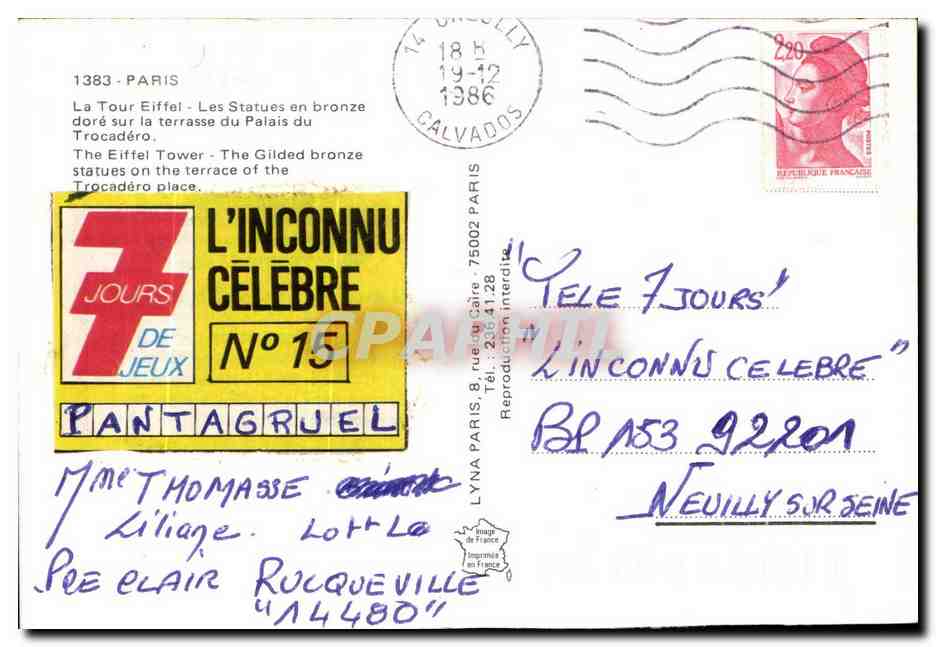 1383 - PARIS
La Tour Eiffel - Les Statues en bronze
doré sur la terrasse du Palais du
Trocadéro.
The Eiffel Tower - The Gilded bronze
statues on the terrace of the
Trocadéro place.
7
JOURS
DE
JEUX
L'INCONNU
CÉLÈBRE
N° 15
PANTAGRUEL
Mme THOMASSE
Liliane. Lott Le
PRE CLAIR RUCQUEVILLE
"14480"
14 CREULLY
18 H
19-12
1986
CALVADOS
2,20
POSTES
REPUBLIQUE FRANÇAISE
LYNA PARIS, 8, rue du Caire - 75002 PARIS
Tél. : 236.41.28
Reproduction interdite
Image
de France
Imprimée
en France
"TELE 7 JOURS"
"L'INCONNU CELEBRE"
BP 153 92201
NEUILLY SUR SEINE
CPARHIL